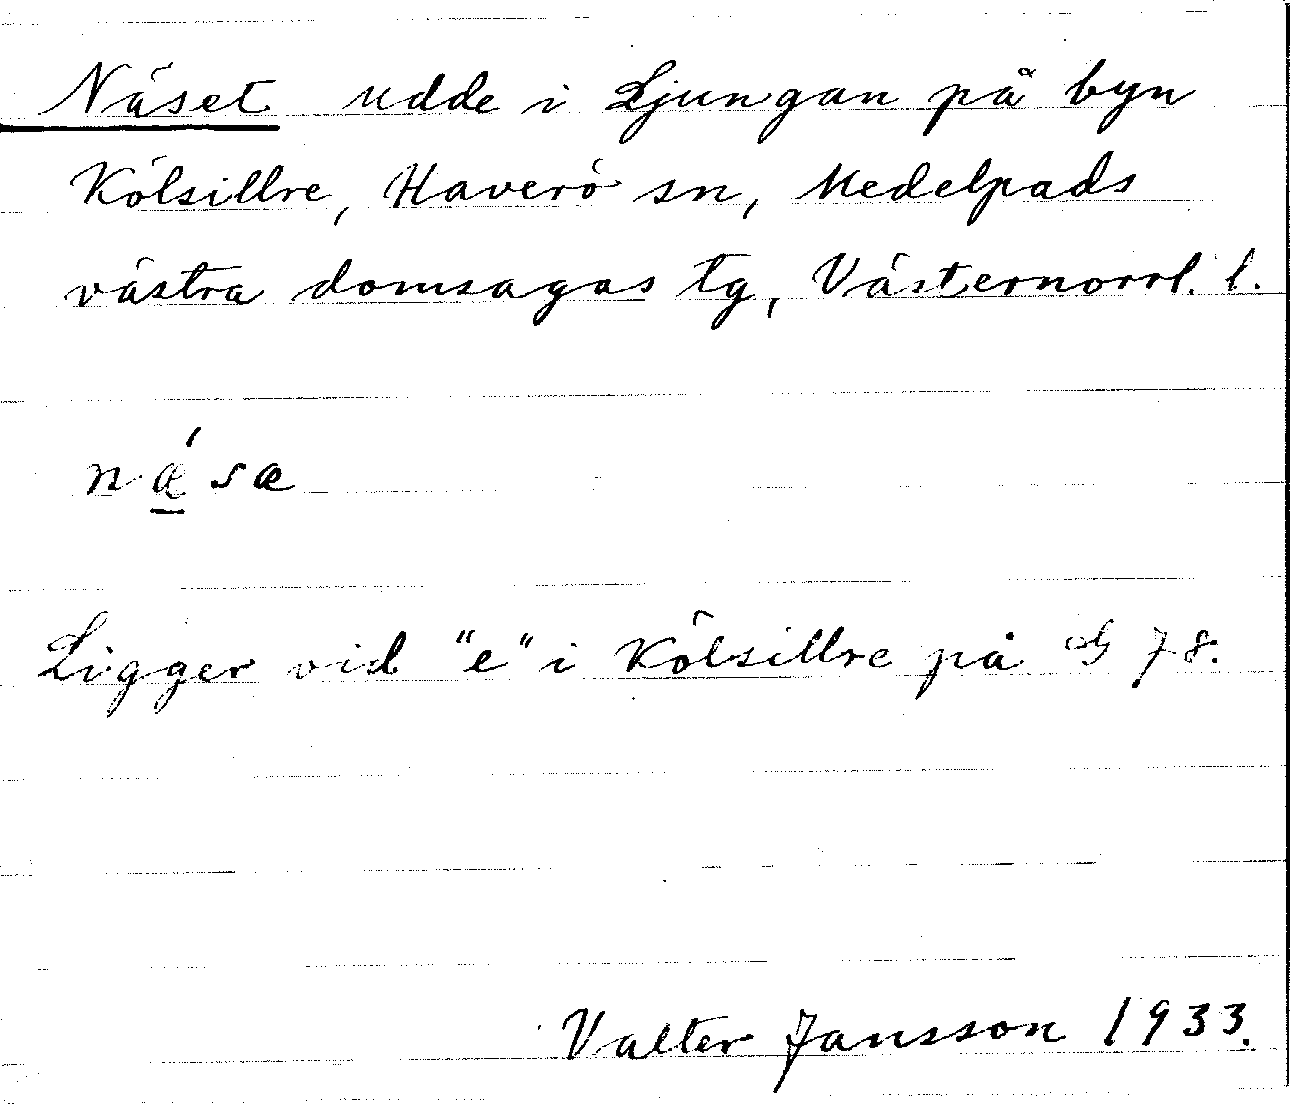 Näset udde i Ljungan på byn
Kölsillre, Haverö sn, Medelpads
västra domsagas tg, Västernorrl. l.
nǽsæ
Ligger vid "e" i Kölsillre på G 78.
Valter Jansson 1933.